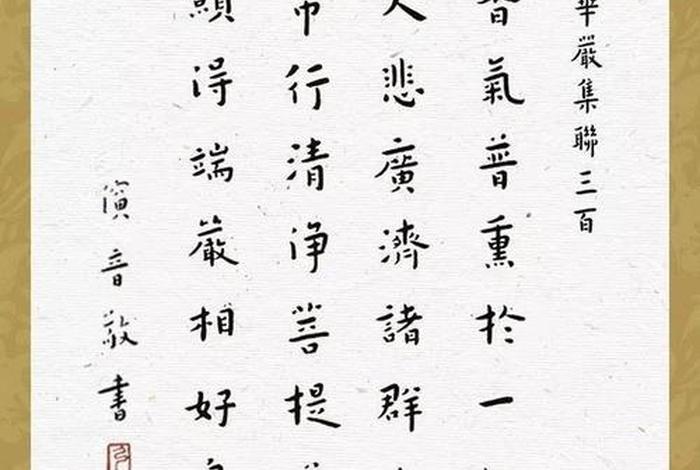 華嚴集聯三百
香氣普熏於一
大悲廣濟諸群
常行清淨菩提
願得端嚴相好
演音敬書